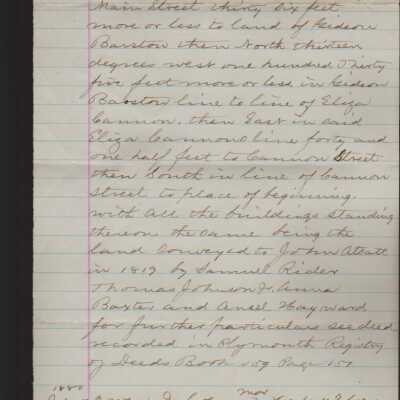 Main Street thirty six feet
more or less to land of Gideon
Barstow then North thirteen
degrees west one hundred Thirty
five feet more or less in Gideon
Barstow line to line of Eliza
Cannon. then East in said
Eliza Cannons line forty and
one half feet to Cannon Street
then South in line of Cannon
Street to place of beginning.
with all the buildings standing
thereon the same being the
land conveyed to John Atsatt
in 1819 by Samuel Rider
Thomas Johnson Jr. Anna
Baxter and Ansel Hayward
for further particulars see deed
recorded in Plymouth Registry
of Deeds Book 159 Page 151
1880